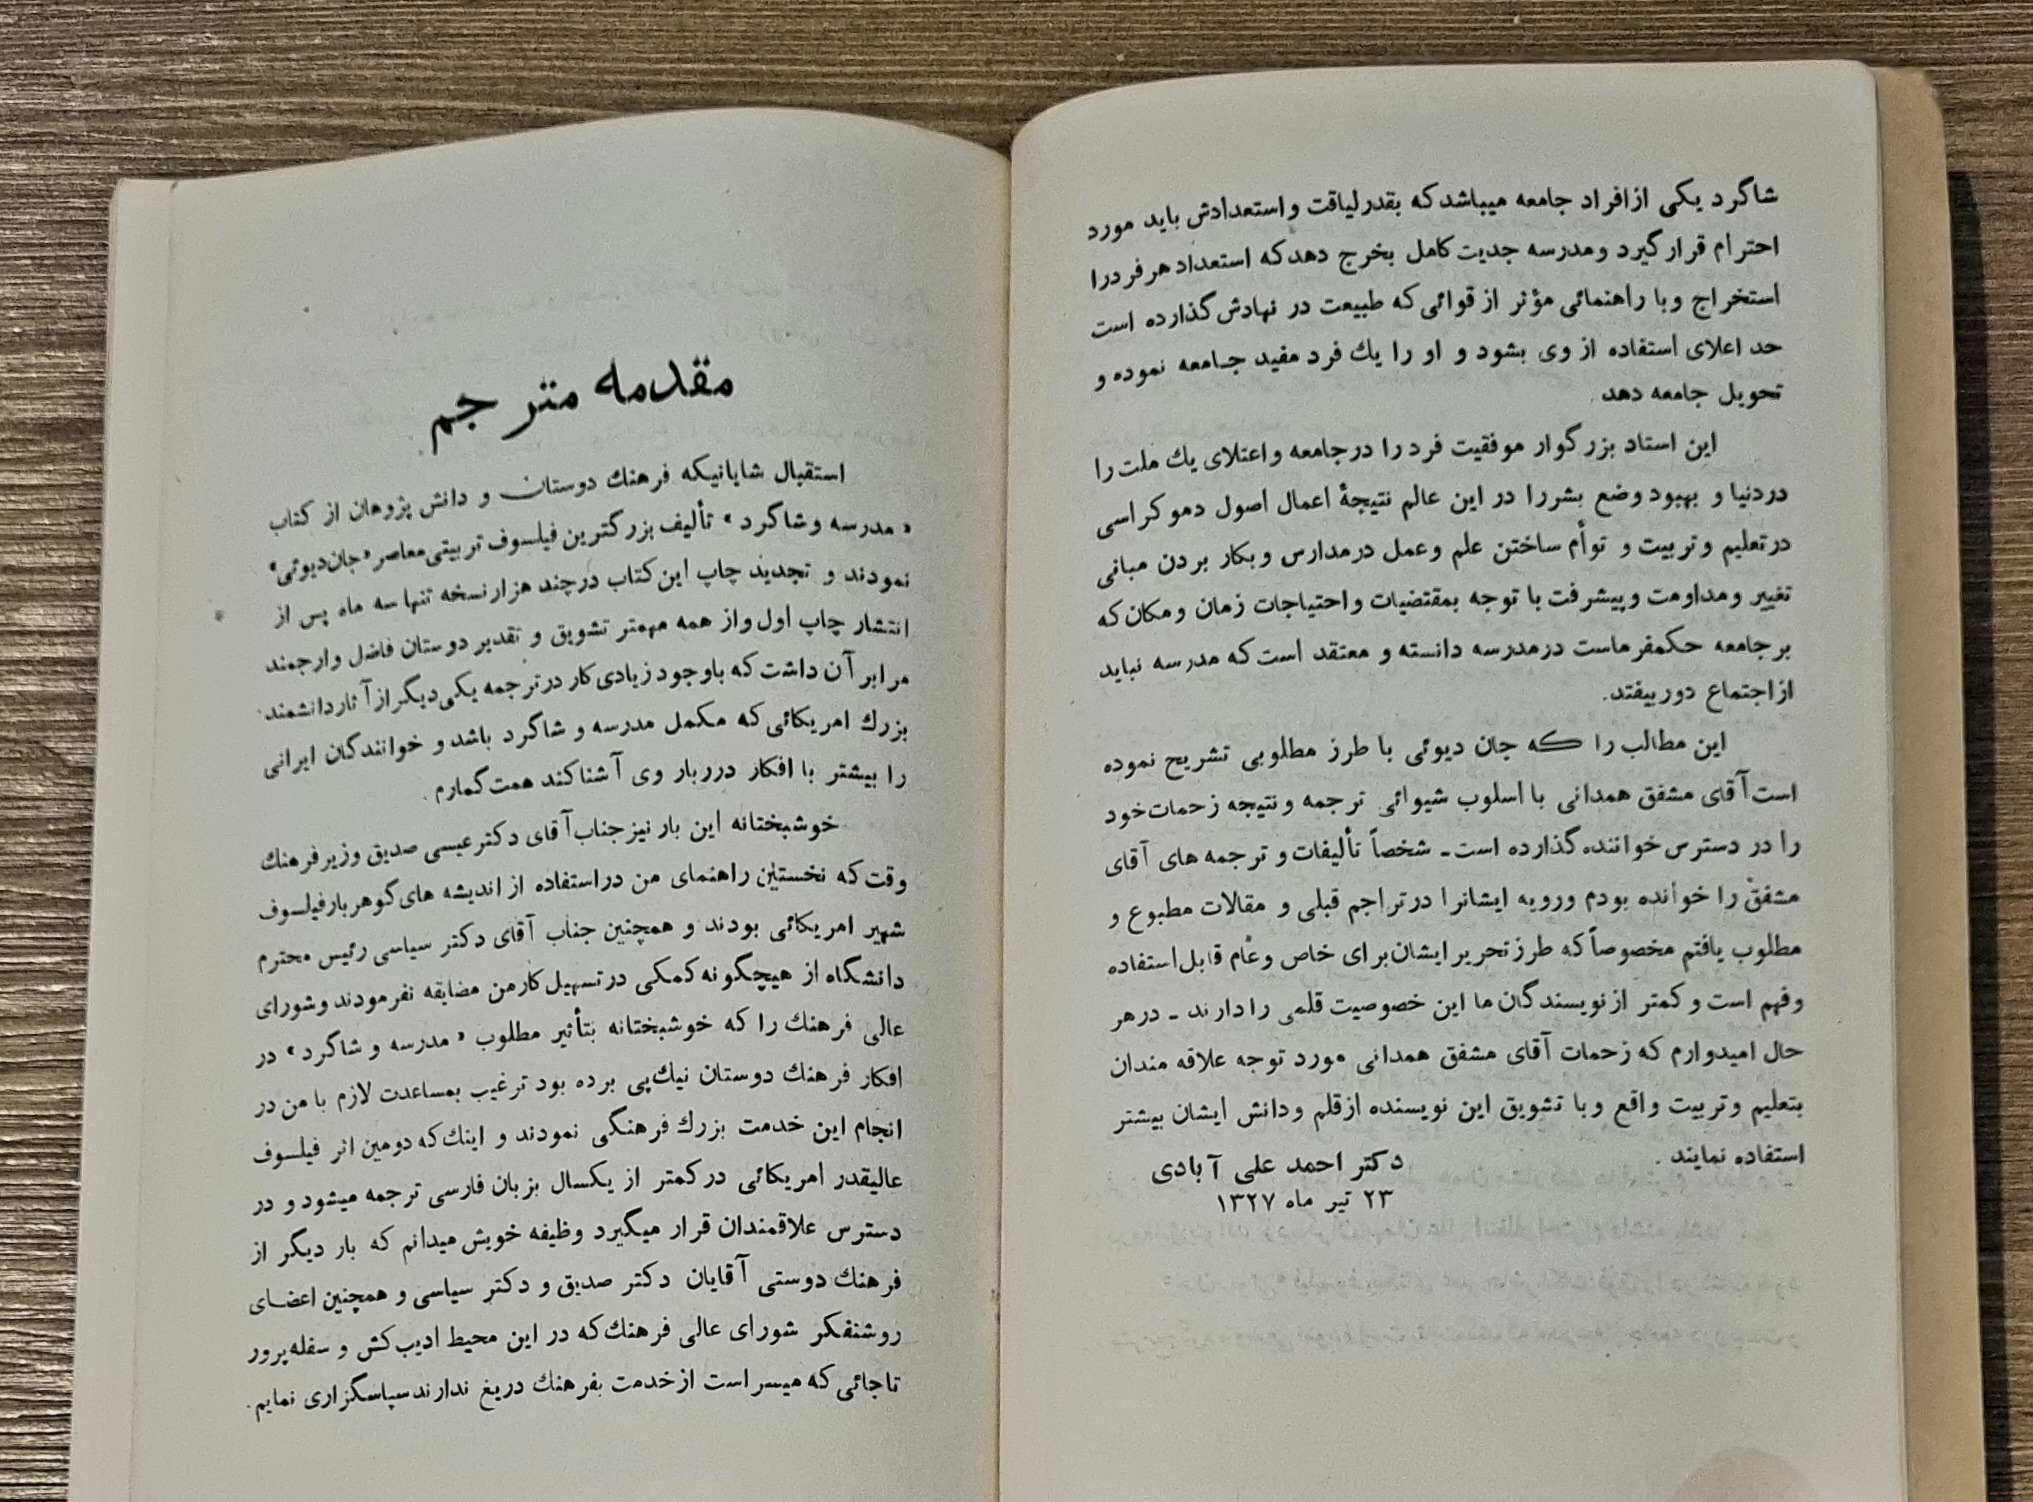 شاگرد یکی از افراد جامعه میباشد که بقدر لیاقت و استعدادش باید مورد
احترام قرار گیرد و مدرسه جدیت کامل بخرج دهد که استعداد هر فرد را
استخراج و با راهنمائی مؤثر از قوائی که طبیعت در نهادش گذارده است
حد اعلای استفاده از وی بشود و او را یك فرد مفید جامعه نموده و
تحویل جامعه دهد
این استاد بزرگوار موفقیت فرد را در جامعه و اعتلای یك ملت را
در دنیا و بهبود وضع بشر را در این عالم نتیجهٔ اعمال اصول دموکراسی
در تعلیم و تربیت و توأم ساختن علم و عمل در مدارس و بکار بردن مبانی
تغییر و مداومت و پیشرفت با توجه بمقتضیات و احتیاجات زمان و مکان که
بر جامعه حکمفرماست در مدرسه دانسته و معتقد است که مدرسه نباید
از اجتماع دور بیفتد.
این مطالب را که جان دیوئی با طرز مطلوبی تشریح نموده
است آقای مشفق همدانی با اسلوب شیوائی ترجمه و نتیجه زحمات خود
را در دسترس خواننده گذارده است ـ شخصاً تألیفات و ترجمه های آقای
مشفق را خوانده بودم و رویه ایشانرا در تراجم قبلی و مقالات مطبوع و
مطلوب یافتم مخصوصاً که طرز تحریر ایشان برای خاص و عام قابل استفاده
و فهم است و کمتر از نویسندگان ما این خصوصیت قلمی را دارند ـ در هر
حال امیدوارم که زحمات آقای مشفق همدانی مورد توجه علاقه مندان
بتعلیم و تربیت واقع و با تشویق این نویسنده از قلم و دانش ایشان بیشتر
استفاده نمایند .
دکتر احمد علی آبادی
۲۳ تیر ماه ۱۳۲۷
مقدمه مترجم
استقبال شایانیکه فرهنك دوستان و دانش پژوهان از کتاب
« مدرسه و شاگرد » تألیف بزرگترین فیلسوف تربیتی معاصر «جان دیوئی»
نمودند و تجدید چاپ این کتاب در چند هزار نسخه تنها سه ماه پس از
انتشار چاپ اول و از همه مهمتر تشویق و تقدیر دوستان فاضل و ارجمند
مرا بر آن داشت که با وجود زیادی کار در ترجمه یکی دیگر از آثار دانشمند
بزرك امریکائی که مکمل مدرسه و شاگرد باشد و خوانندگان ایرانی
را بیشتر با افکار درربار وی آشنا کند همت گمارم .
خوشبختانه این بار نیز جناب آقای دکتر عیسی صدیق وزیر فرهنك
وقت که نخستین راهنمای من در استفاده از اندیشه های گوهربار فیلسوف
شهیر امریکائی بودند و همچنین جناب آقای دکتر سیاسی رئیس محترم
دانشگاه از هیچگونه کمکی در تسهیل کار من مضایقه نفرمودند و شورای
عالی فرهنك را که خوشبختانه بتأثیر مطلوب « مدرسه و شاگرد » در
افکار فرهنك دوستان نیك پی برده بود ترغیب بمساعدت لازم با من در
انجام این خدمت بزرك فرهنگی نمودند و اینك که دومین اثر فیلسوف
عالیقدر امریکائی در کمتر از یکسال بزبان فارسی ترجمه میشود و در
دسترس علاقمندان قرار میگیرد وظیفه خویش میدانم که بار دیگر از
فرهنك دوستی آقایان دکتر صدیق و دکتر سیاسی و همچنین اعضای
روشنفکر شورای عالی فرهنك که در این محیط ادیب کش و سفله پرور
تا جائی که میسر است از خدمت بفرهنك دریغ ندارند سپاسگزاری نمایم.